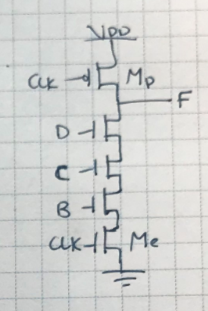 VDD
CLK Mp
F
D
C
B
CLK Me